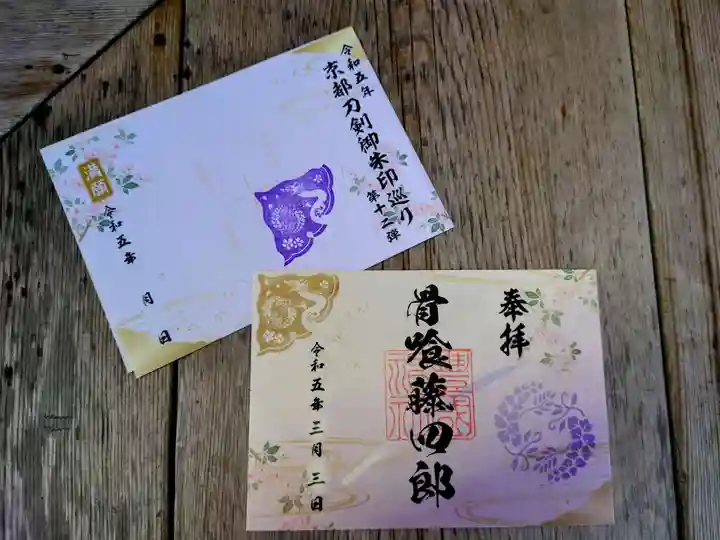 令和五年
京都刀剣御朱印巡り
第十二弾
満願
令和五年 月 日
奉拝
骨喰藤四郎
令和五年三月三日